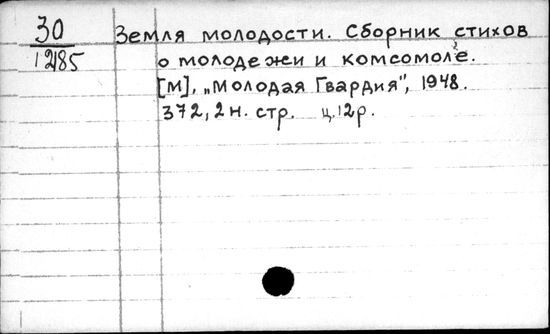 30
12185
Земля молодости. Сборник стихов
о молодежи и комсомоле.
[М], „Молодая Гвардия", 1948.
372, 2 н. стр. ц. 12 р.